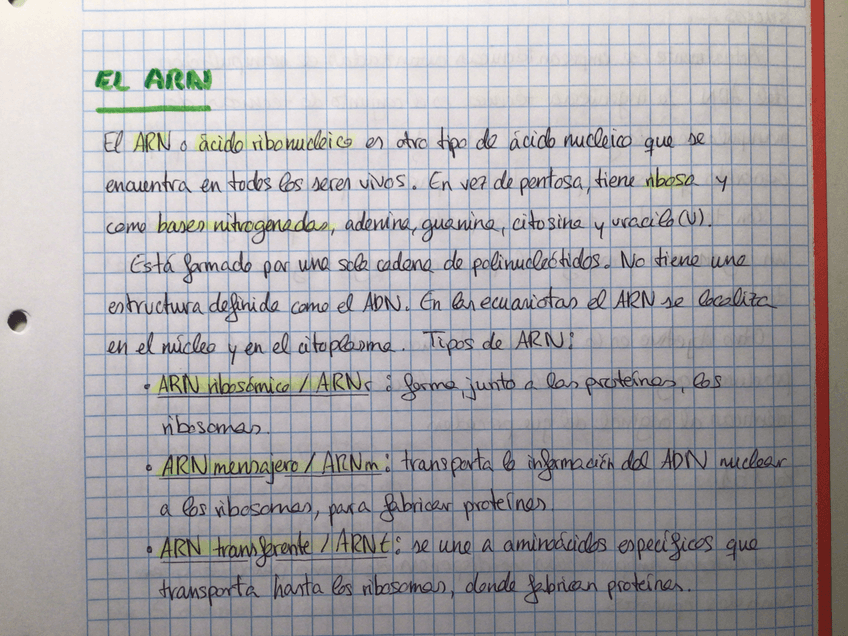 EL ARN
El ARN o ácido ribonucleico es otro tipo de ácido nucleico que se
encuentra en todos los seres vivos. En vez de pentosa, tiene ribosa y
como bases nitrogenadas, adenina, guanina, citosina y uracilo (U).
Está formado por una sola cadena de polinucleótidos. No tiene una
estructura definida como el ADN. En las ecuariotas el ARN se localiza
en el núcleo y en el citoplasma. Tipos de ARN:
• ARN ribosómico / ARNr : forma, junto a las proteínas, los
ribosomas.
• ARN mensajero / ARNm : transporta la información del ADN nuclear
a los ribosomas, para fabricar proteínas.
• ARN transferente / ARNt : se une a aminoácidos específicos que
transporta hasta los ribosomas, donde fabrican proteínas.